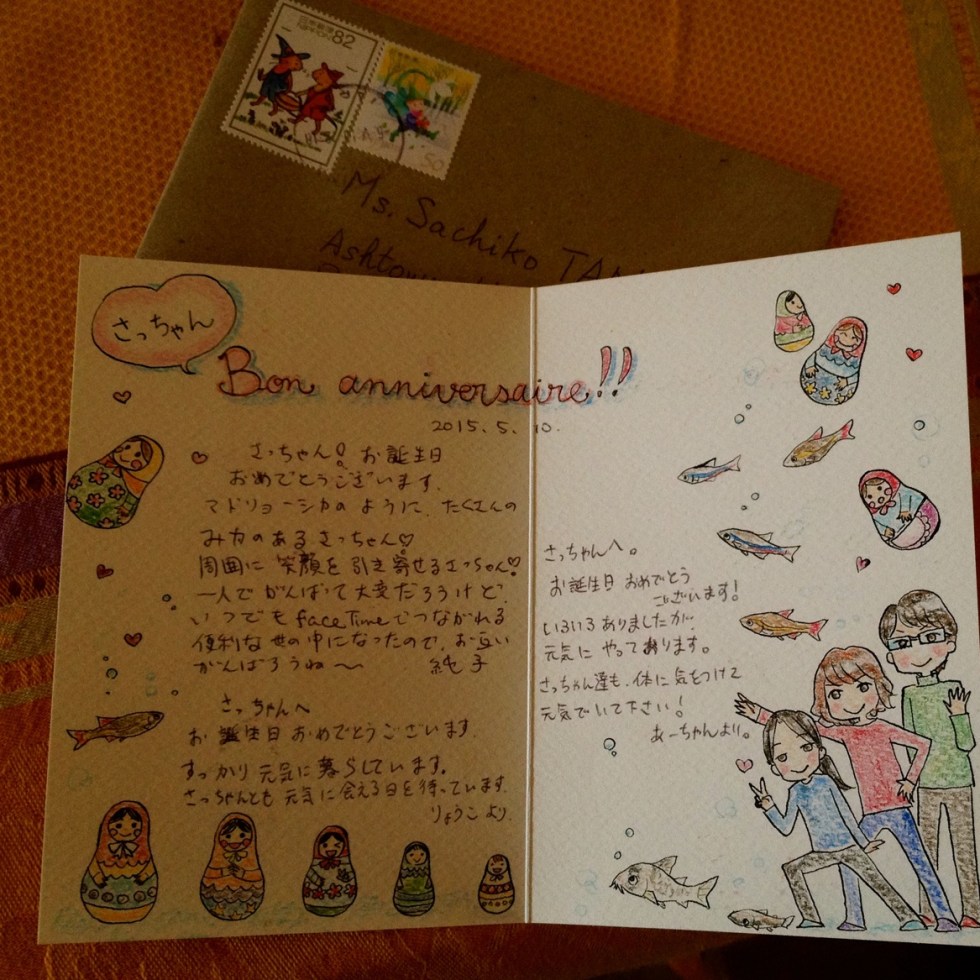 日本郵便
82
50
Ms. Sachiko
さっちゃん
Bon anniversaire!!
2015.5.10.
さっちゃん!お誕生日
おめでとうございます.
マドリョーシカのように、たくさんの
みカのあるさっちゃん♡
周囲に笑顔を引き寄せるさっちゃん♡
一人でがんばって大変だろうけど、
いつでもfaceTimeでつながれる
便利な世の中になったので、お互い
がんばろうね〜 純子
さっちゃんへ
お誕生日おめでとうございます.
すっかり元気に暮らしています.
さっちゃんとも元気に会える日を待っています.
りょうこより.
さっちゃんへ。
お誕生日おめでとう
ございます!
いろいろありましたが、
元気にやっております。
さっちゃん達も、体に気をつけて
元気でいて下さい!
あーちゃんより。